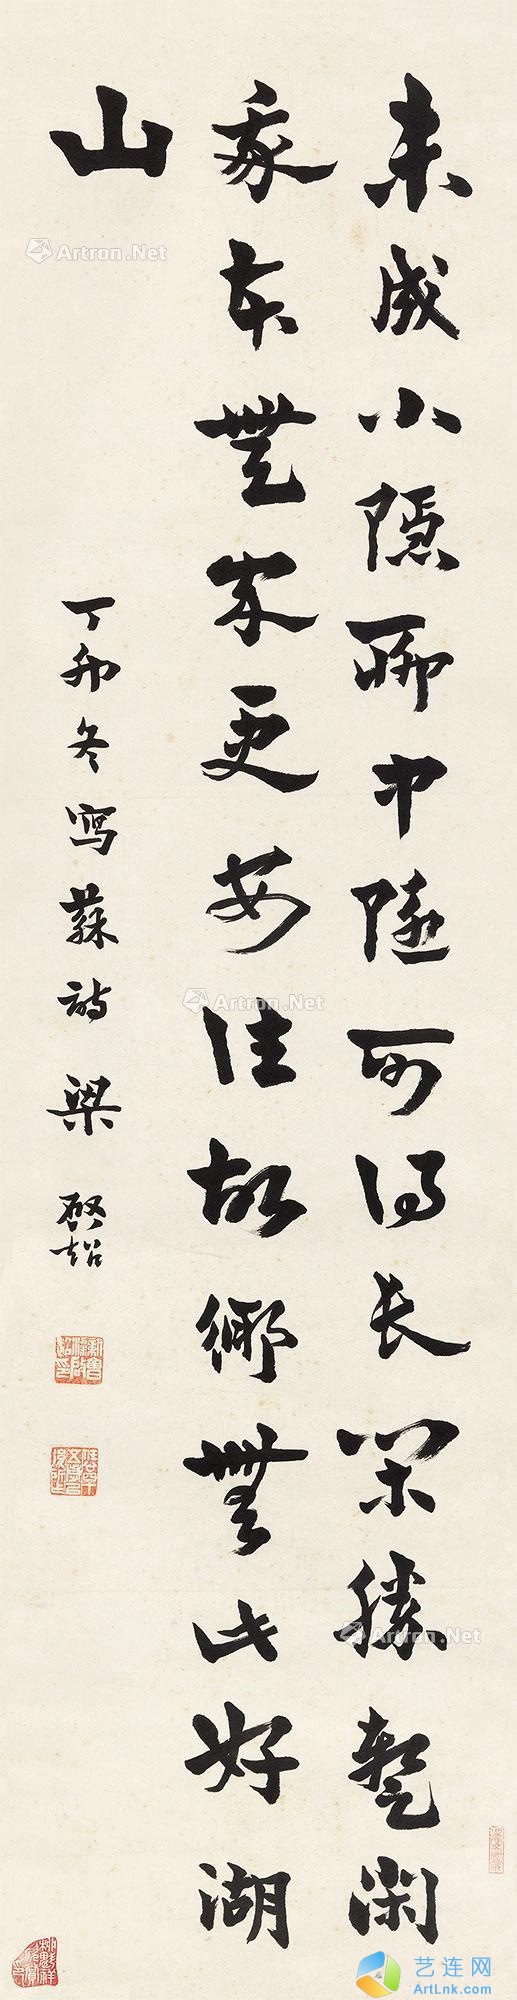 未成小隱聊中隱可得長閑勝暫閑
我本無家更安往故鄉無此好湖
山
丁卯冬寫蘇詩梁啟超
Artron.Net
Artron.Net
Artron.Net
艺连网
ArtLnk.com